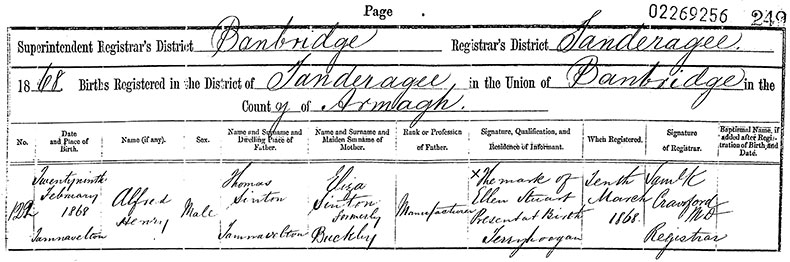 Page 02269256 249
Superintendent Registrar's District Banbridge Registrar's District Tanderagee.
1868 Births Registered in the District of Tanderagee in the Union of Banbridge in the
County of Armagh.
No. Date and Place of Birth. Name (if any). Sex. Name and Surname and Dwelling Place of Father. Name and Surname and Maiden Surname of Mother. Rank or Profession of Father. Signature, Qualification, and Residence of Informant. When Registered. Signature of Registrar. Baptismal Name, if added after Registration of Birth, and Date.
Twentyninth
February
1868
Tamnavelton
Alfred
Henry
Male
Thomas
Sinton
Tamnavelton
Eliza
Sinton
formerly
Buckley
Manufacturer
X The mark of
Ellen Stuart
Present at Birth
Terryhoogan
Tenth
March
1868
Saml K
Crawford
MD
Registrar